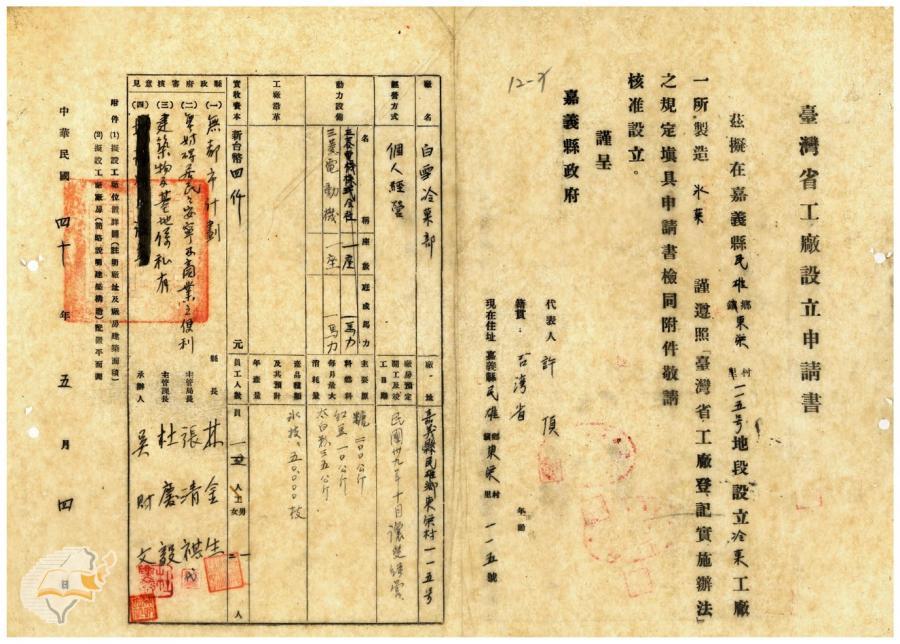 臺灣省工廠設立申請書
茲擬在嘉義縣民雄鄉鎮東榮村里一一五號地段設立冷菓工廠
一所製造 氷菓 謹遵照「臺灣省工廠登記實施辦法」
之規定填具申請書檢同附件敬請
核准設立。
謹呈
嘉義縣政府
12-2
代表人 許 頂 年齡
籍貫：台灣省
現在住址 嘉義縣民雄鄉鎮東榮村里一一五號
廠名 白雪冷菓部
廠址 嘉義縣民雄鄉東榮村一一五號
經營方式 個人經營
廠房預定開工及竣工日期 民國卅九年十月
動力設備 名稱 座數 匹或馬力
一座 一馬力
三菱電動機 一座 一馬力
主要原料總料每月最大消耗量
糖 二〇〇公斤
紅豆一〇公斤
太白粉三五公斤
工廠沿革
產品種類及其預計年產量
氷枝 五〇,〇〇〇枝
實收資本 新台幣四仟 元
員工人數 員 一 人 工 男 女 一 人
縣政府審核意見
(一) 無都市計劃
(二) 無妨碍居民之安寧及商業之便利
(三) 建築物及基地係私有
(四)
縣長 林金生
主管局長 張清祺
主管課長 杜慶毅
承辦人 吳財文
附件 (1) 擬設工廠位置詳圖(註明廠址及廠房建築面積)
(2) 擬設工廠廠房(簡略說明建築構造)配置平面圖
中華民國 四十 年 五 月 四 日